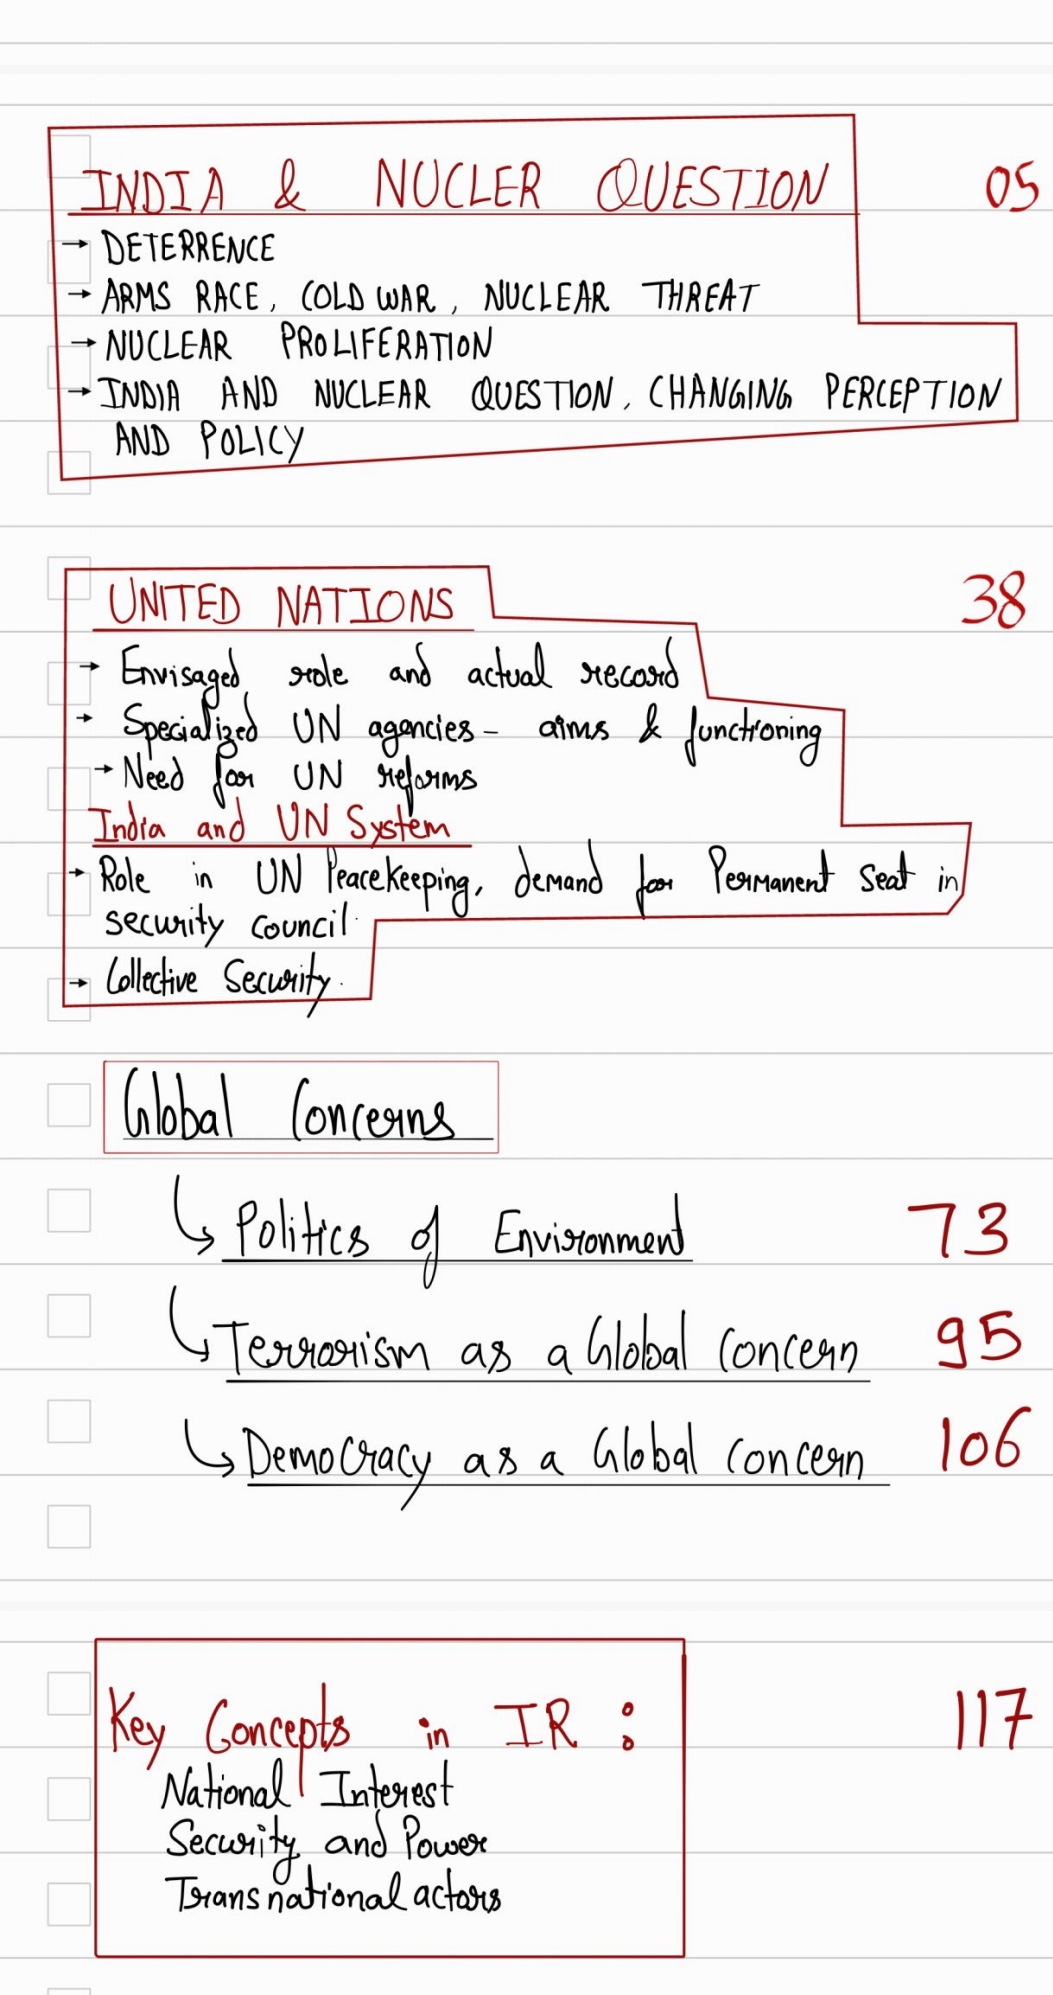 INDIA & NUCLER QUESTION 05
→ DETERRENCE
→ ARMS RACE, COLD WAR, NUCLEAR THREAT
→ NUCLEAR PROLIFERATION
→ INDIA AND NUCLEAR QUESTION, CHANGING PERCEPTION
AND POLICY
UNITED NATIONS 38
→ Envisaged role and actual record
→ Specialized UN agencies - aims & functioning
→ Need for UN reforms
India and UN System
→ Role in UN Peacekeeping, demand for Permanent Seat in
security council.
→ Collective Security.
Global Concerns
↳ Politics of Environment 73
↳ Terrorism as a Global Concern 95
↳ Democracy as a Global concern 106
Key Concepts in IR : 117
National Interest
Security and Power
Transnational actors